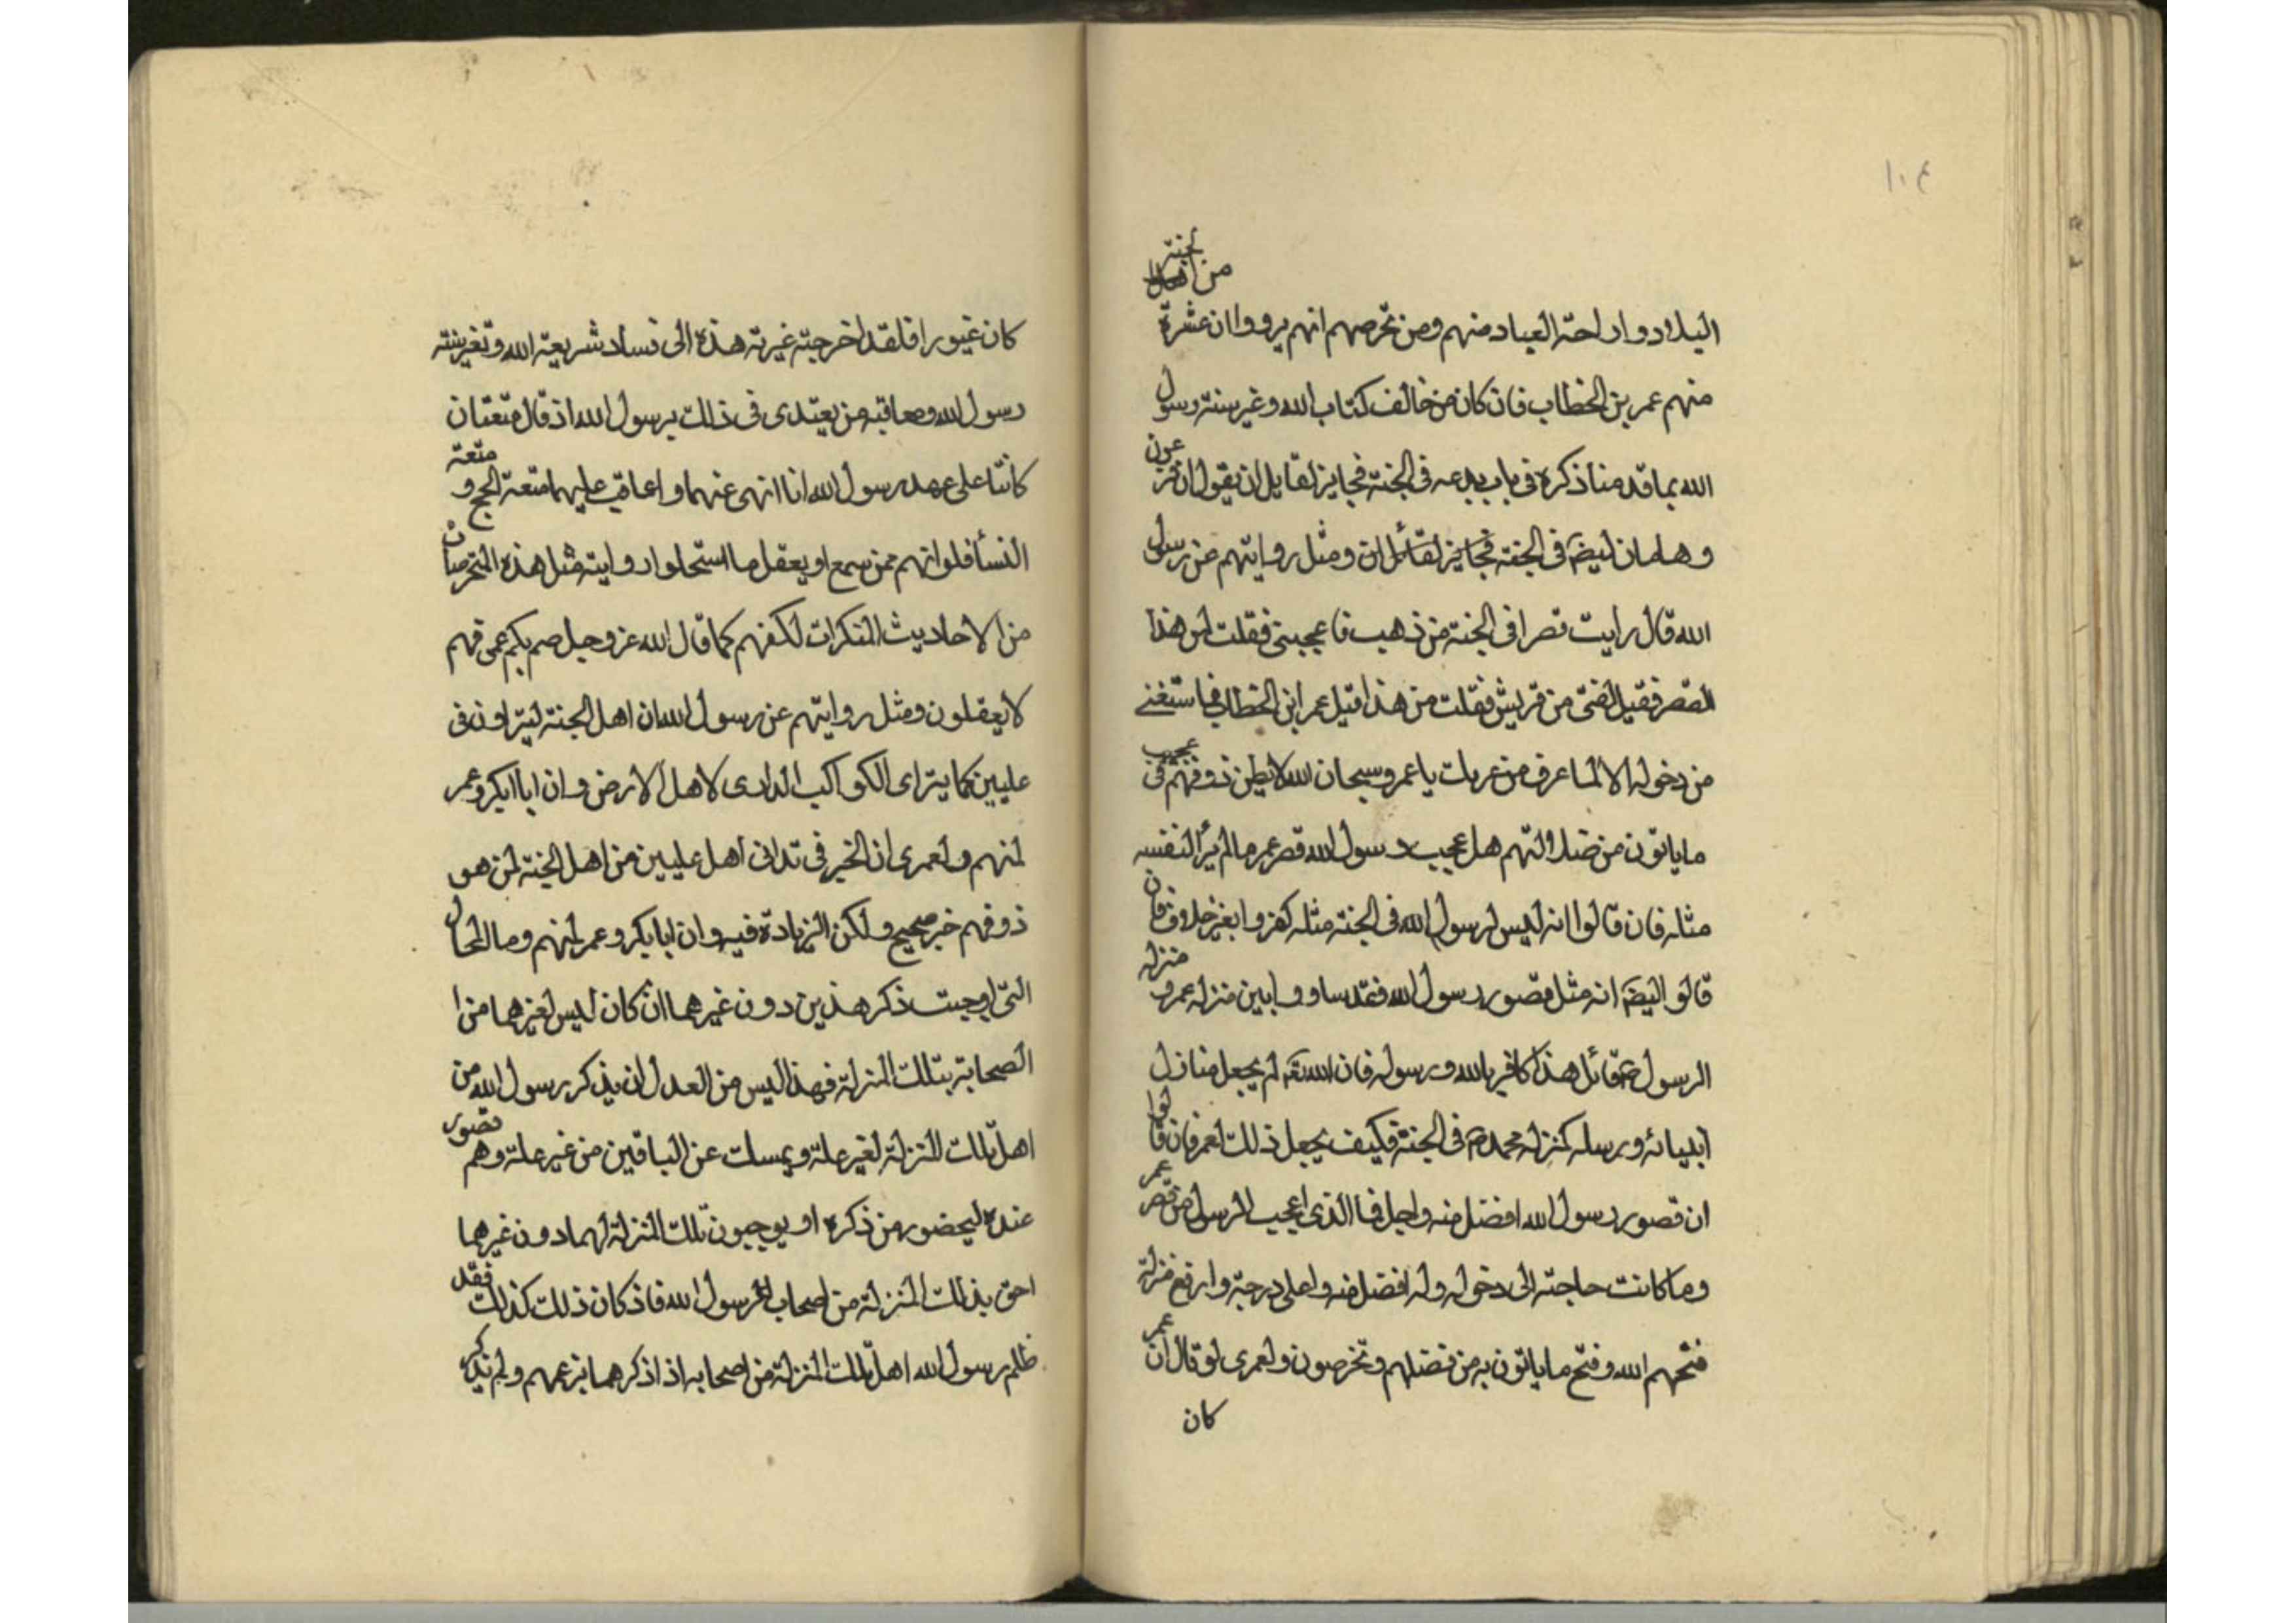 ١٠٤
من اهل الجنة
البلاد واراحة العباد منهم ومن تخرصهم انهم يروون ان عشرة
منهم عمر بن الخطاب فان كان من خالف كتاب الله وغير سنة رسول
الله بما قدمنا ذكره في باب بدعه في الجنة فجايز لقايل ان يقول ان فرعون
وهامان ايضا في الجنة فجايز لقائل ان ومثل روايتهم عن رسول
الله قال رايت قصرا في الجنة من ذهب فاعجبني فقلت لمن هذا
القصر فقيل لفتى من قريش فقلت من هذا قيل عمر ابن الخطاب فما ستغنى
من دخوله الا لما اعرف من غيرتك يا عمر وسبحان الله لا يظن ذو فهم في عجيب
ما ياتون من ضلالتهم هل عجيب رسول الله قصر عمر ما لم ير لنفسه
مثله فان قالوا انه ليس لرسول الله في الجنة مثله كفروا بغير خلاف فان
قالو ايضا انه مثل قصور رسول الله فقد ساووا بين منزله عمر و منزله
الرسول ص وقائل هذا كافر بالله ورسوله فان الله تعه لم يجعل منازل
انبيائه ورسله كمنزله محمد ص في الجنة فكيف يجعل ذلك لعمر فان قالوا
ان قصور رسول الله افضل منه واجل فما الذي اعجب الرسول من قصر عمر
وما كانت حاجته الى دخوله وله افضل منه واعلى درجة وارفع منزلة
قبحهم الله وقبح ما ياتون به من فضلهم وتخرصون ولعمري لو قال ان عمر
كان
كان غيورا فلقد اخرجته غيرته هذه الى فساد شريعة الله وتغير سنته
رسول الله ومعاقبه من يقتدى في ذلك برسول الله اذ قال متعتان
كانتا على عهد رسول الله انا انهى عنهما واعاقب عليهما متعة الحج و متعة
النسأ فلو انهم ممن سمع او يعقل ما استحلوا رواية مثل هذه المتخرصات
من الاحاديث المنكرات لكنهم كما قال الله عز وجل صم بكم عمى فهم
لا يعقلون ومثل روايتهم عن رسول الله ان اهل الجنة ليتراون في
عليين كما يتراى الكواكب الدرى لاهل الارض وان ابا ابكر وعمر
لمنهم ولعمرى ان الخبر في تدانى اهل عليين من اهل الجنة لمن هو
ذو فهم خبر صحيح ولكن الزيادة فيه وان ابا بكر وعمر لمنهم وما الحال
التي اوجبت ذكر هذين دون غيرهما ان كان ليس لغيرهما من ا
الصحابة بتلك المنزلة فهذا ليس من العدل ان يذكر رسول الله من
اهل تلك المنزلة لغير علة ويمسك عن الباقين من غير علة وهم قصور
عنده ليحضور من ذكره او يوجبون تلك المنزلة لهما دون غيرهما
احق بذلك المنزلة من اصحاب الرسول الله فاذ كان ذلك كذلك فقد
ظلم رسول الله اهل تلك المنزلة من اصحابه اذ اذكر هما بزعمهم ولم يذكر